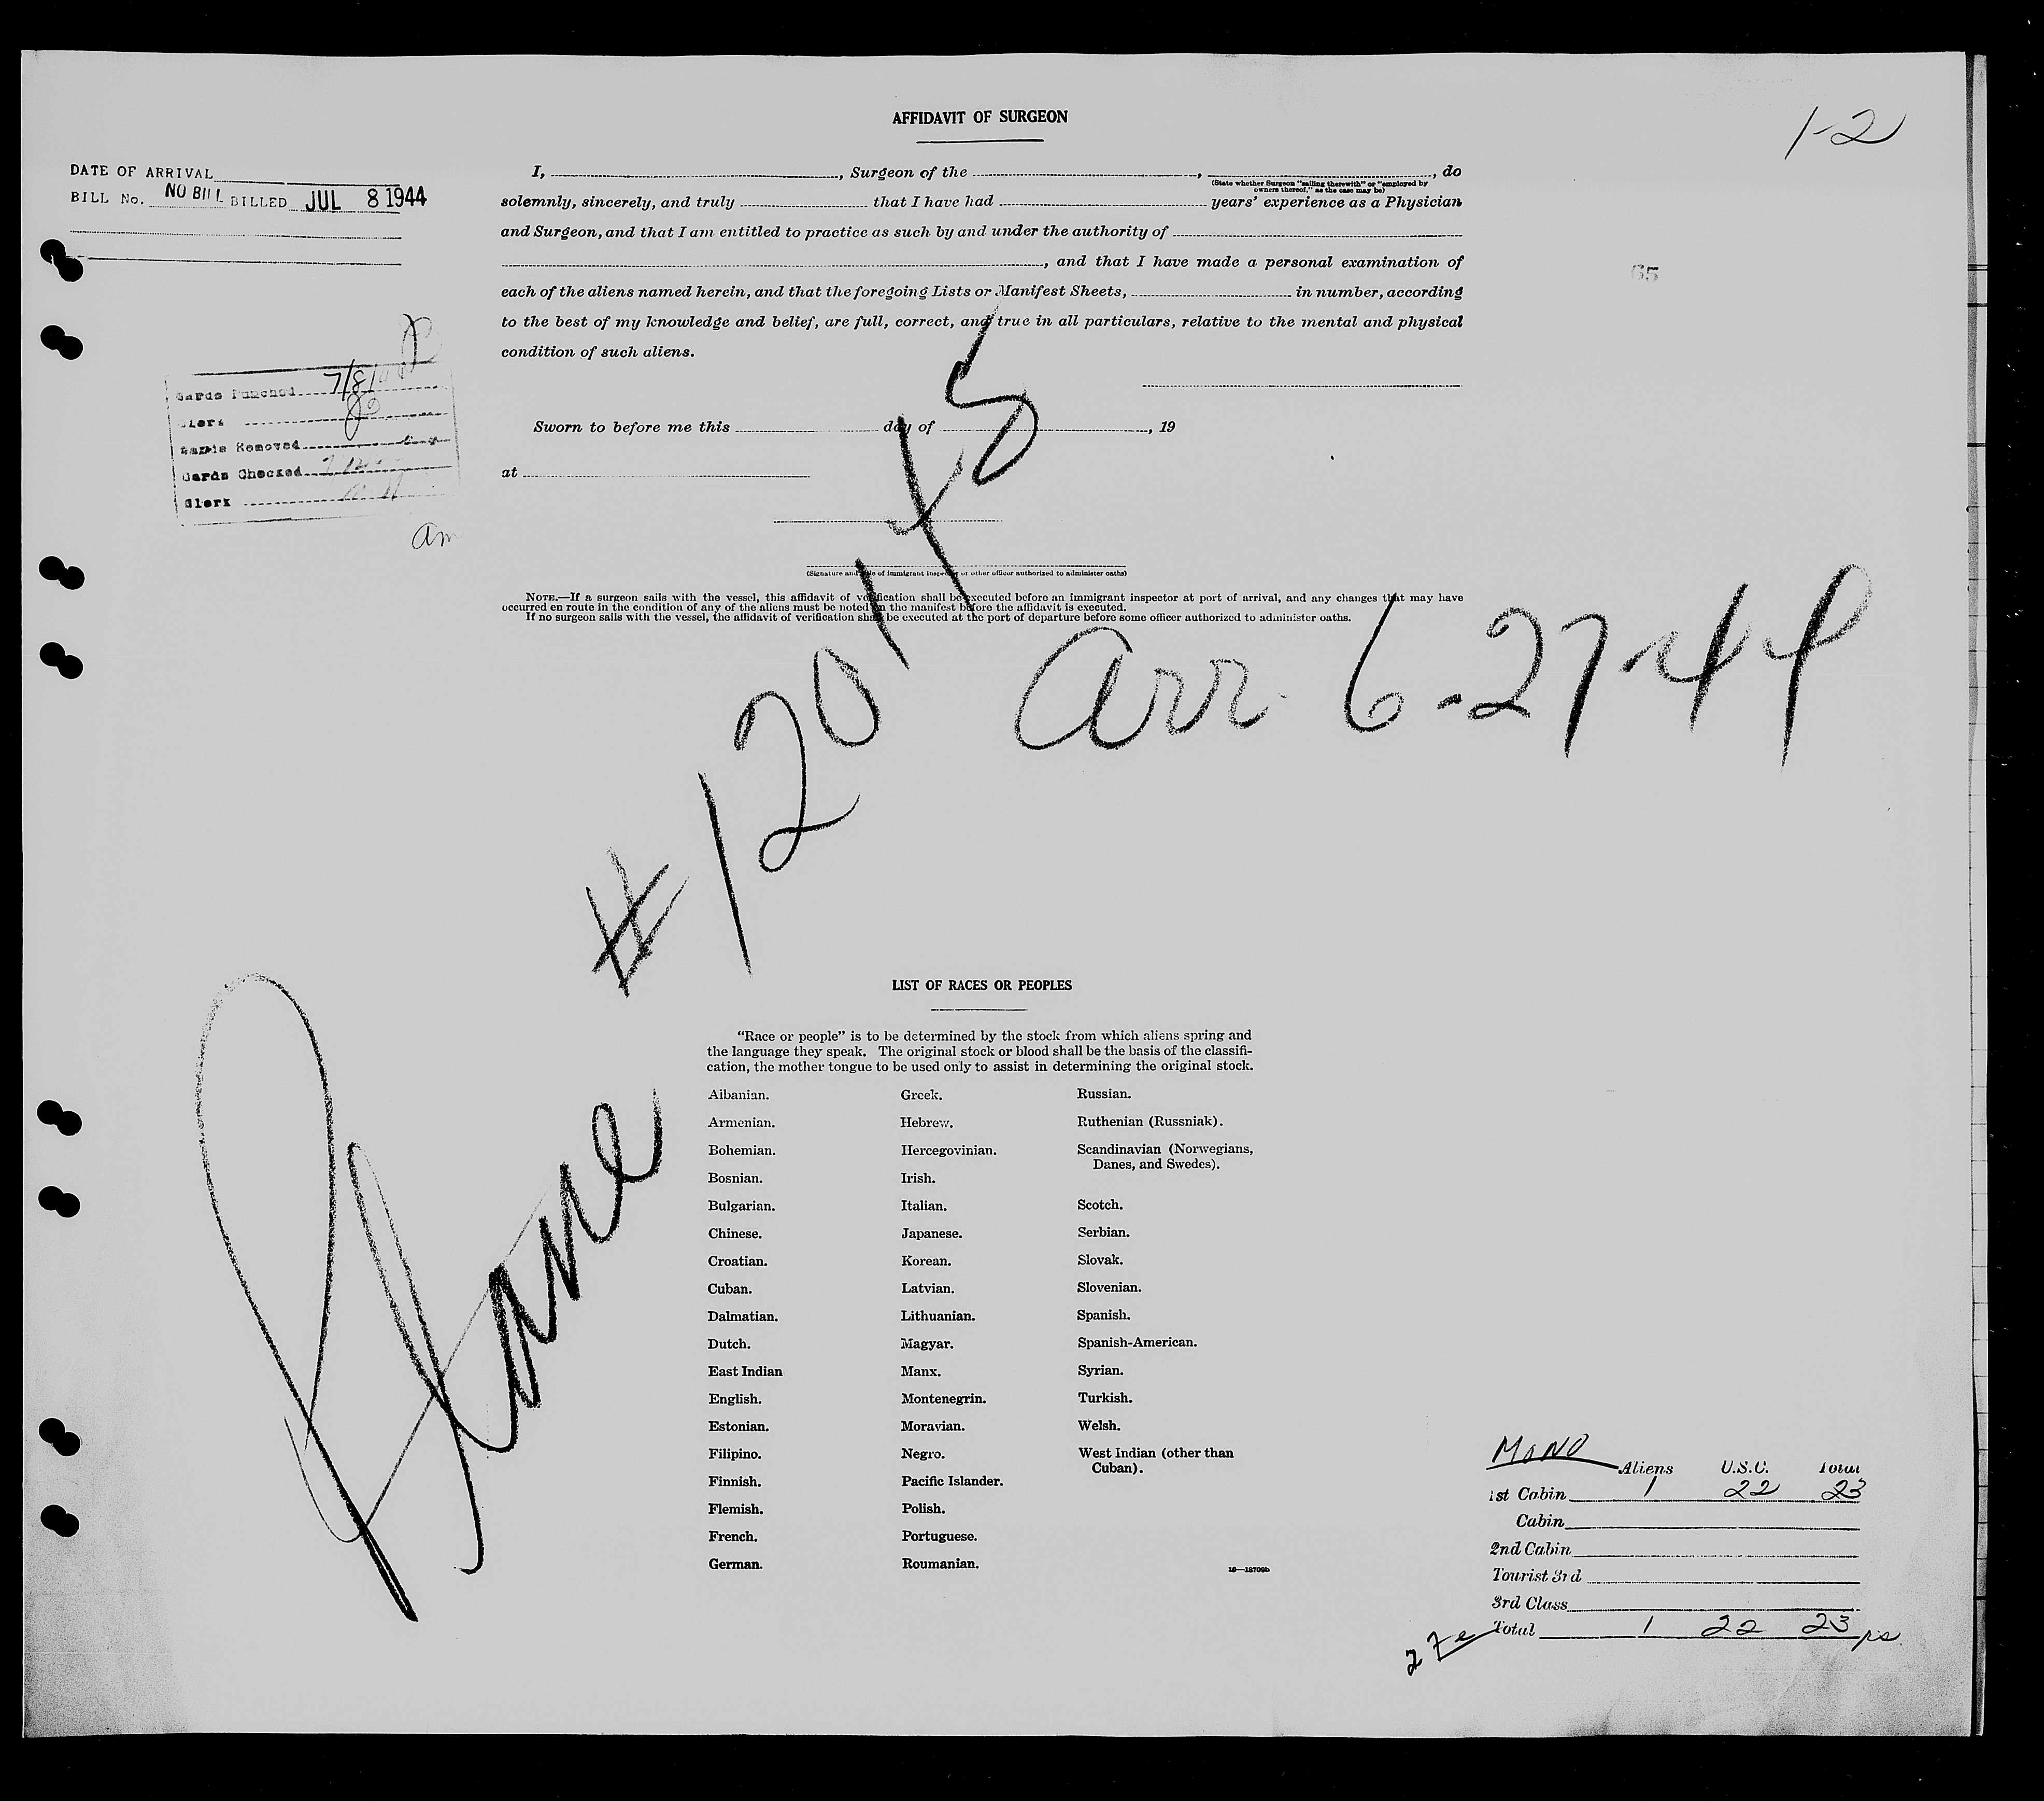 AFFIDAVIT OF SURGEON
1-2
DATE OF ARRIVAL
BILL No. NO BILL BILLED JUL 8 1944
I, , Surgeon of the , , do
(State whether Surgeon "sailing therewith" or "employed by
owners thereof," as the case may be)
solemnly, sincerely, and truly that I have had years' experience as a Physician
and Surgeon, and that I am entitled to practice as such by and under the authority of
, and that I have made a personal examination of
65
each of the aliens named herein, and that the foregoing Lists or Manifest Sheets, in number, according
to the best of my knowledge and belief, are full, correct, and true in all particulars, relative to the mental and physical
condition of such aliens.
Cards Punched 7/8/
Clerk
Removed
Cards Checked
Clerk
am
Sworn to before me this day of , 19
at
(Signature and title of immigrant inspector or other officer authorized to administer oaths)
NOTE.—If a surgeon sails with the vessel, this affidavit of verification shall be executed before an immigrant inspector at port of arrival, and any changes that may have
occurred en route in the condition of any of the aliens must be noted on the manifest before the affidavit is executed.
If no surgeon sails with the vessel, the affidavit of verification shall be executed at the port of departure before some officer authorized to administer oaths.
Plane # 120145
arr. 6-27-44
LIST OF RACES OR PEOPLES
"Race or people" is to be determined by the stock from which aliens spring and
the language they speak. The original stock or blood shall be the basis of the classifi-
cation, the mother tongue to be used only to assist in determining the original stock.
Albanian. Greek. Russian.
Armenian. Hebrew. Ruthenian (Russniak).
Bohemian. Hercegovinian. Scandinavian (Norwegians,
Danes, and Swedes).
Bosnian. Irish.
Bulgarian. Italian. Scotch.
Chinese. Japanese. Serbian.
Croatian. Korean. Slovak.
Cuban. Latvian. Slovenian.
Dalmatian. Lithuanian. Spanish.
Dutch. Magyar. Spanish-American.
East Indian Manx. Syrian.
English. Montenegrin. Turkish.
Estonian. Moravian. Welsh.
Filipino. Negro. West Indian (other than
Cuban).
Finnish. Pacific Islander.
Flemish. Polish.
French. Portuguese.
German. Roumanian.
16—18709b
Aliens U.S.C. Total
1st Cabin 1 22 23
Cabin
2nd Cabin
Tourist 3rd
3rd Class
Total 1 22 23